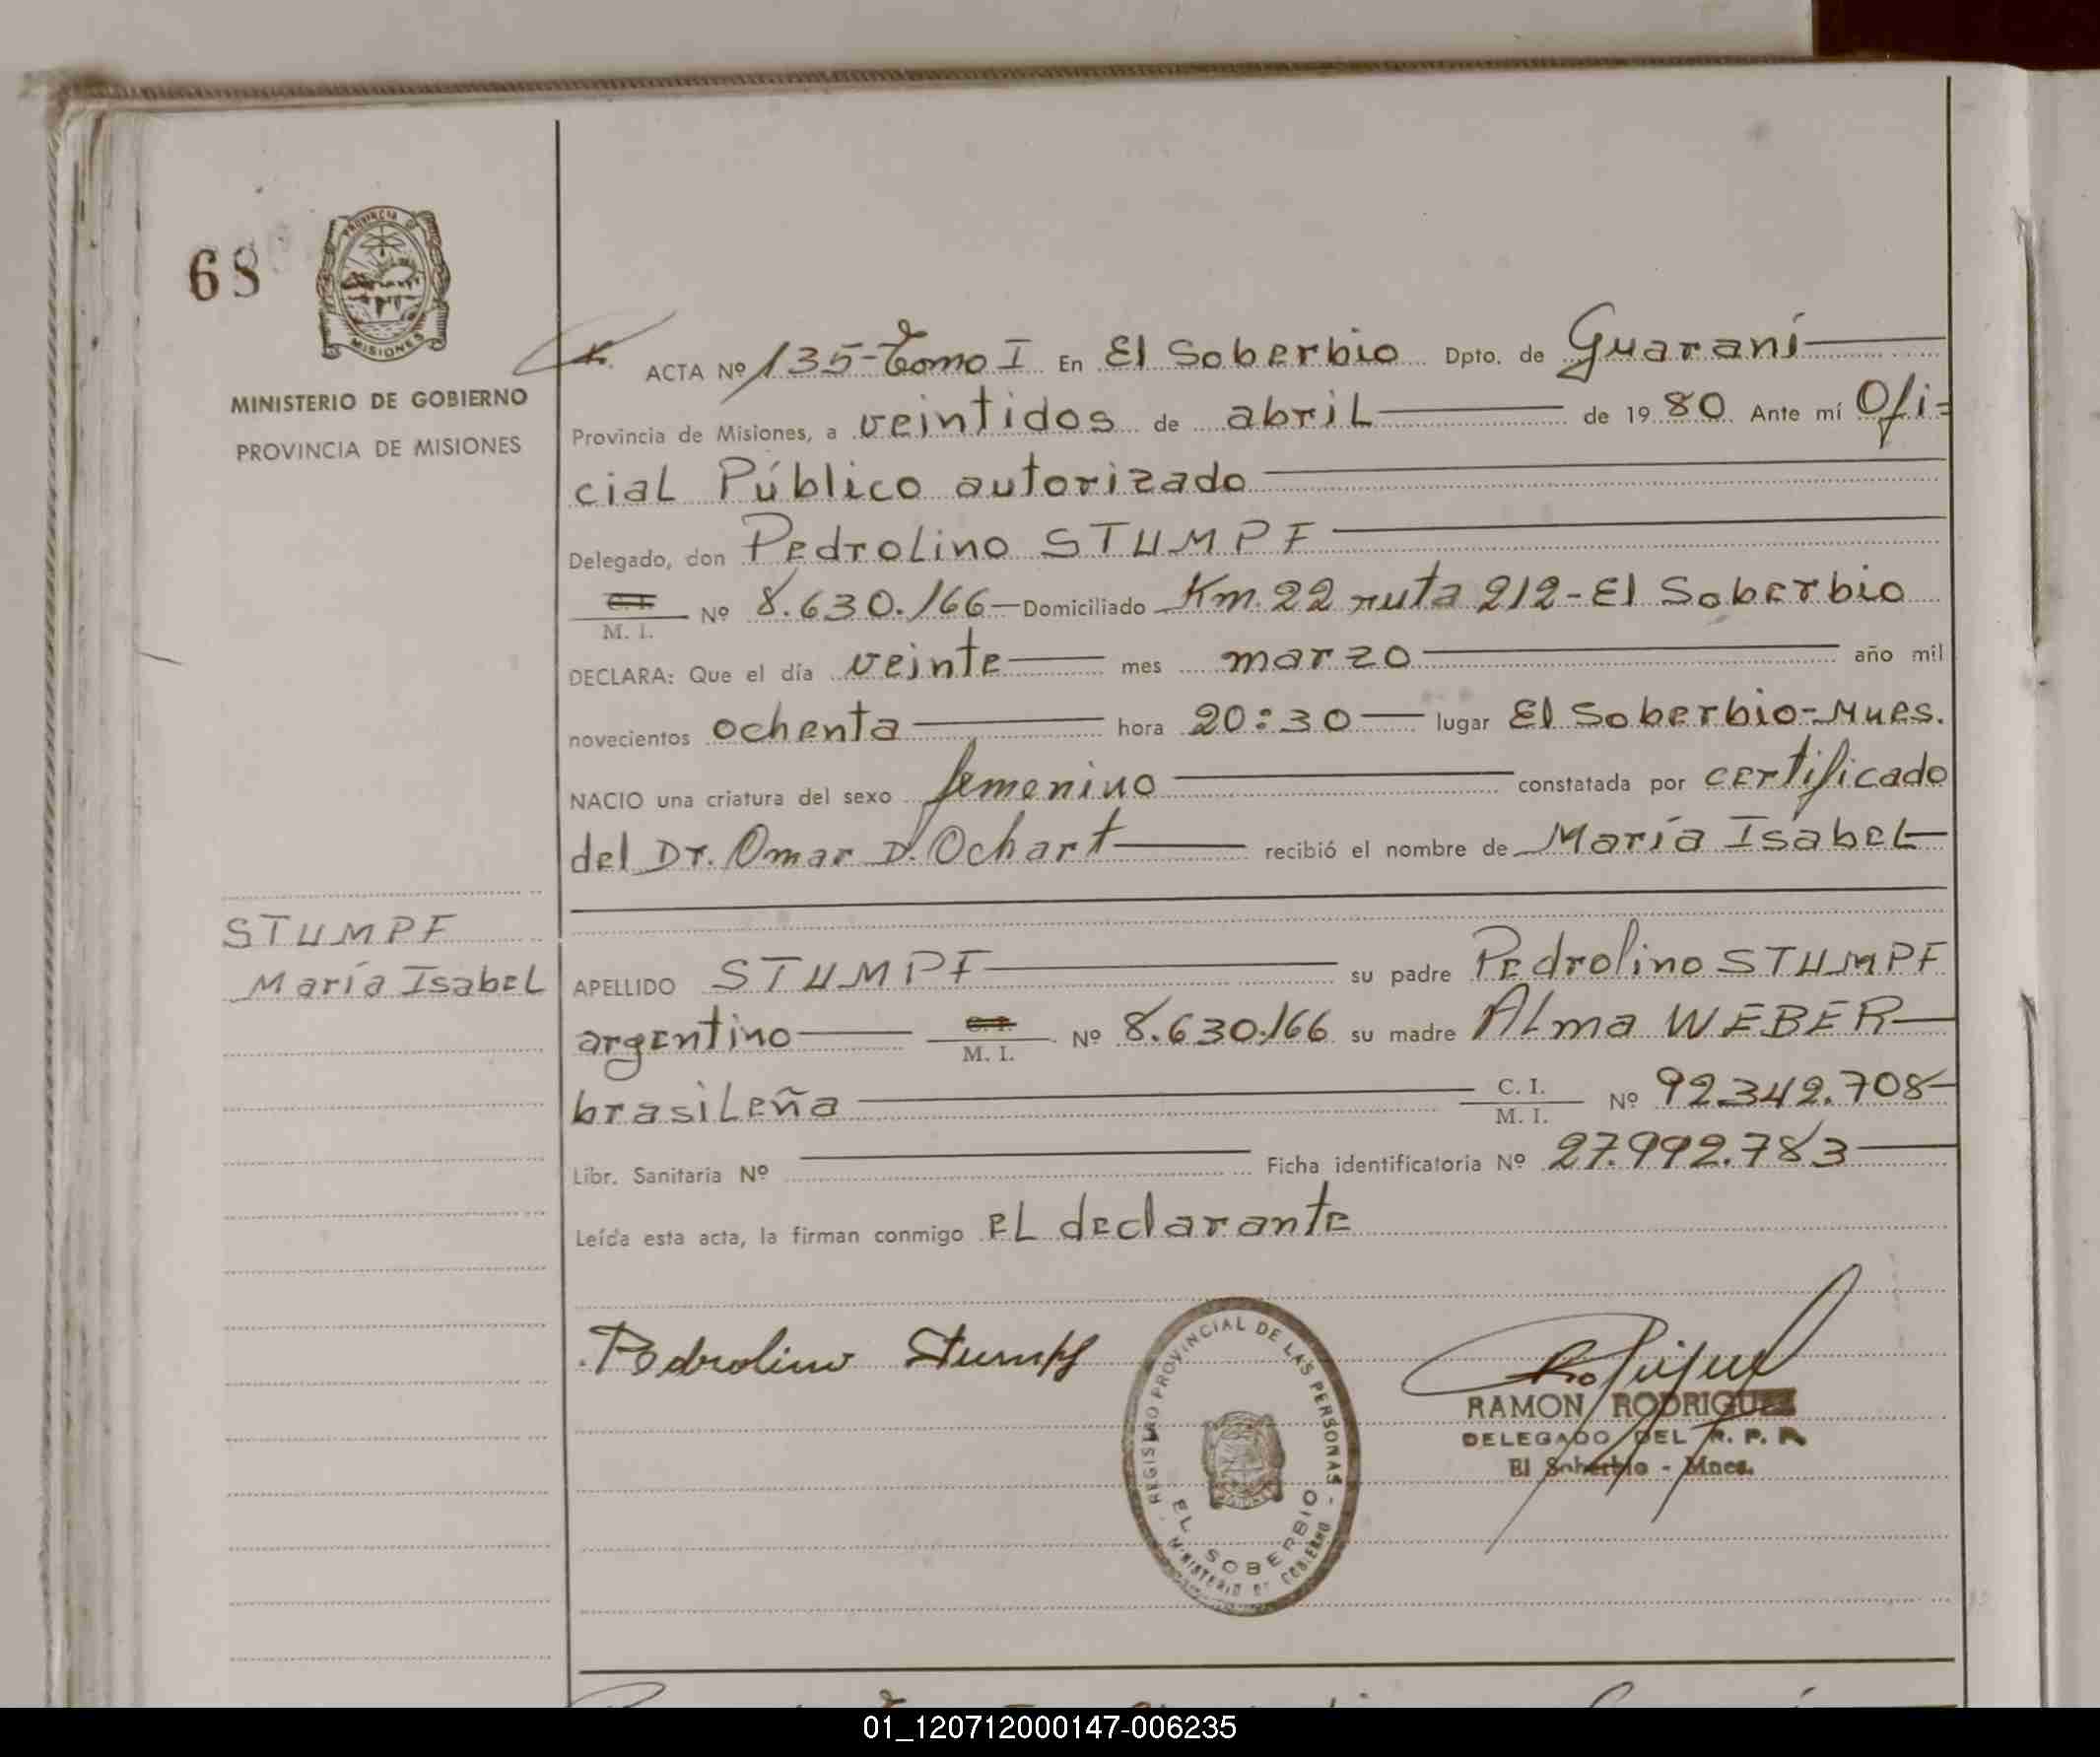 68
PROVINCIA D
MISIONES
MINISTERIO DE GOBIERNO
PROVINCIA DE MISIONES
ACTA Nº 135-Tomo I En El Soberbio Dpto. de Guaraní
Provincia de Misiones, a veintidos de abril de 1980 Ante mí Ofi-
cial Público autorizado
Delegado, don Pedrolino STUMPF
C. I.
M. I. Nº 8.630.166 Domiciliado Km. 22 ruta 212-El Soberbio
DECLARA: Que el día veinte mes marzo año mil
novecientos ochenta hora 20:30 lugar El Soberbio-Mnes.
NACIO una criatura del sexo femenino constatada por certificado
del Dr. Omar D. Ochart recibió el nombre de María Isabel
STUMPF
María Isabel
APELLIDO STUMPF su padre Pedrolino STUMPF
argentino C. I.
M. I. Nº 8.630.166 su madre Alma WEBER
brasileña C. I.
M. I. Nº 92.342.708
Libr. Sanitaria Nº Ficha identificatoria Nº 27.992.783
Leída esta acta, la firman conmigo el declarante
Pedrolino Stumpf
REGISTRO PROVINCIAL DE LAS PERSONAS -
EL SOBERBIO
MINISTERIO DE GOBIERNO
RAMON RODRIGUEZ
DELEGADO DEL R. P. P.
El Soberbio - Mnes.
01_120712000147-006235